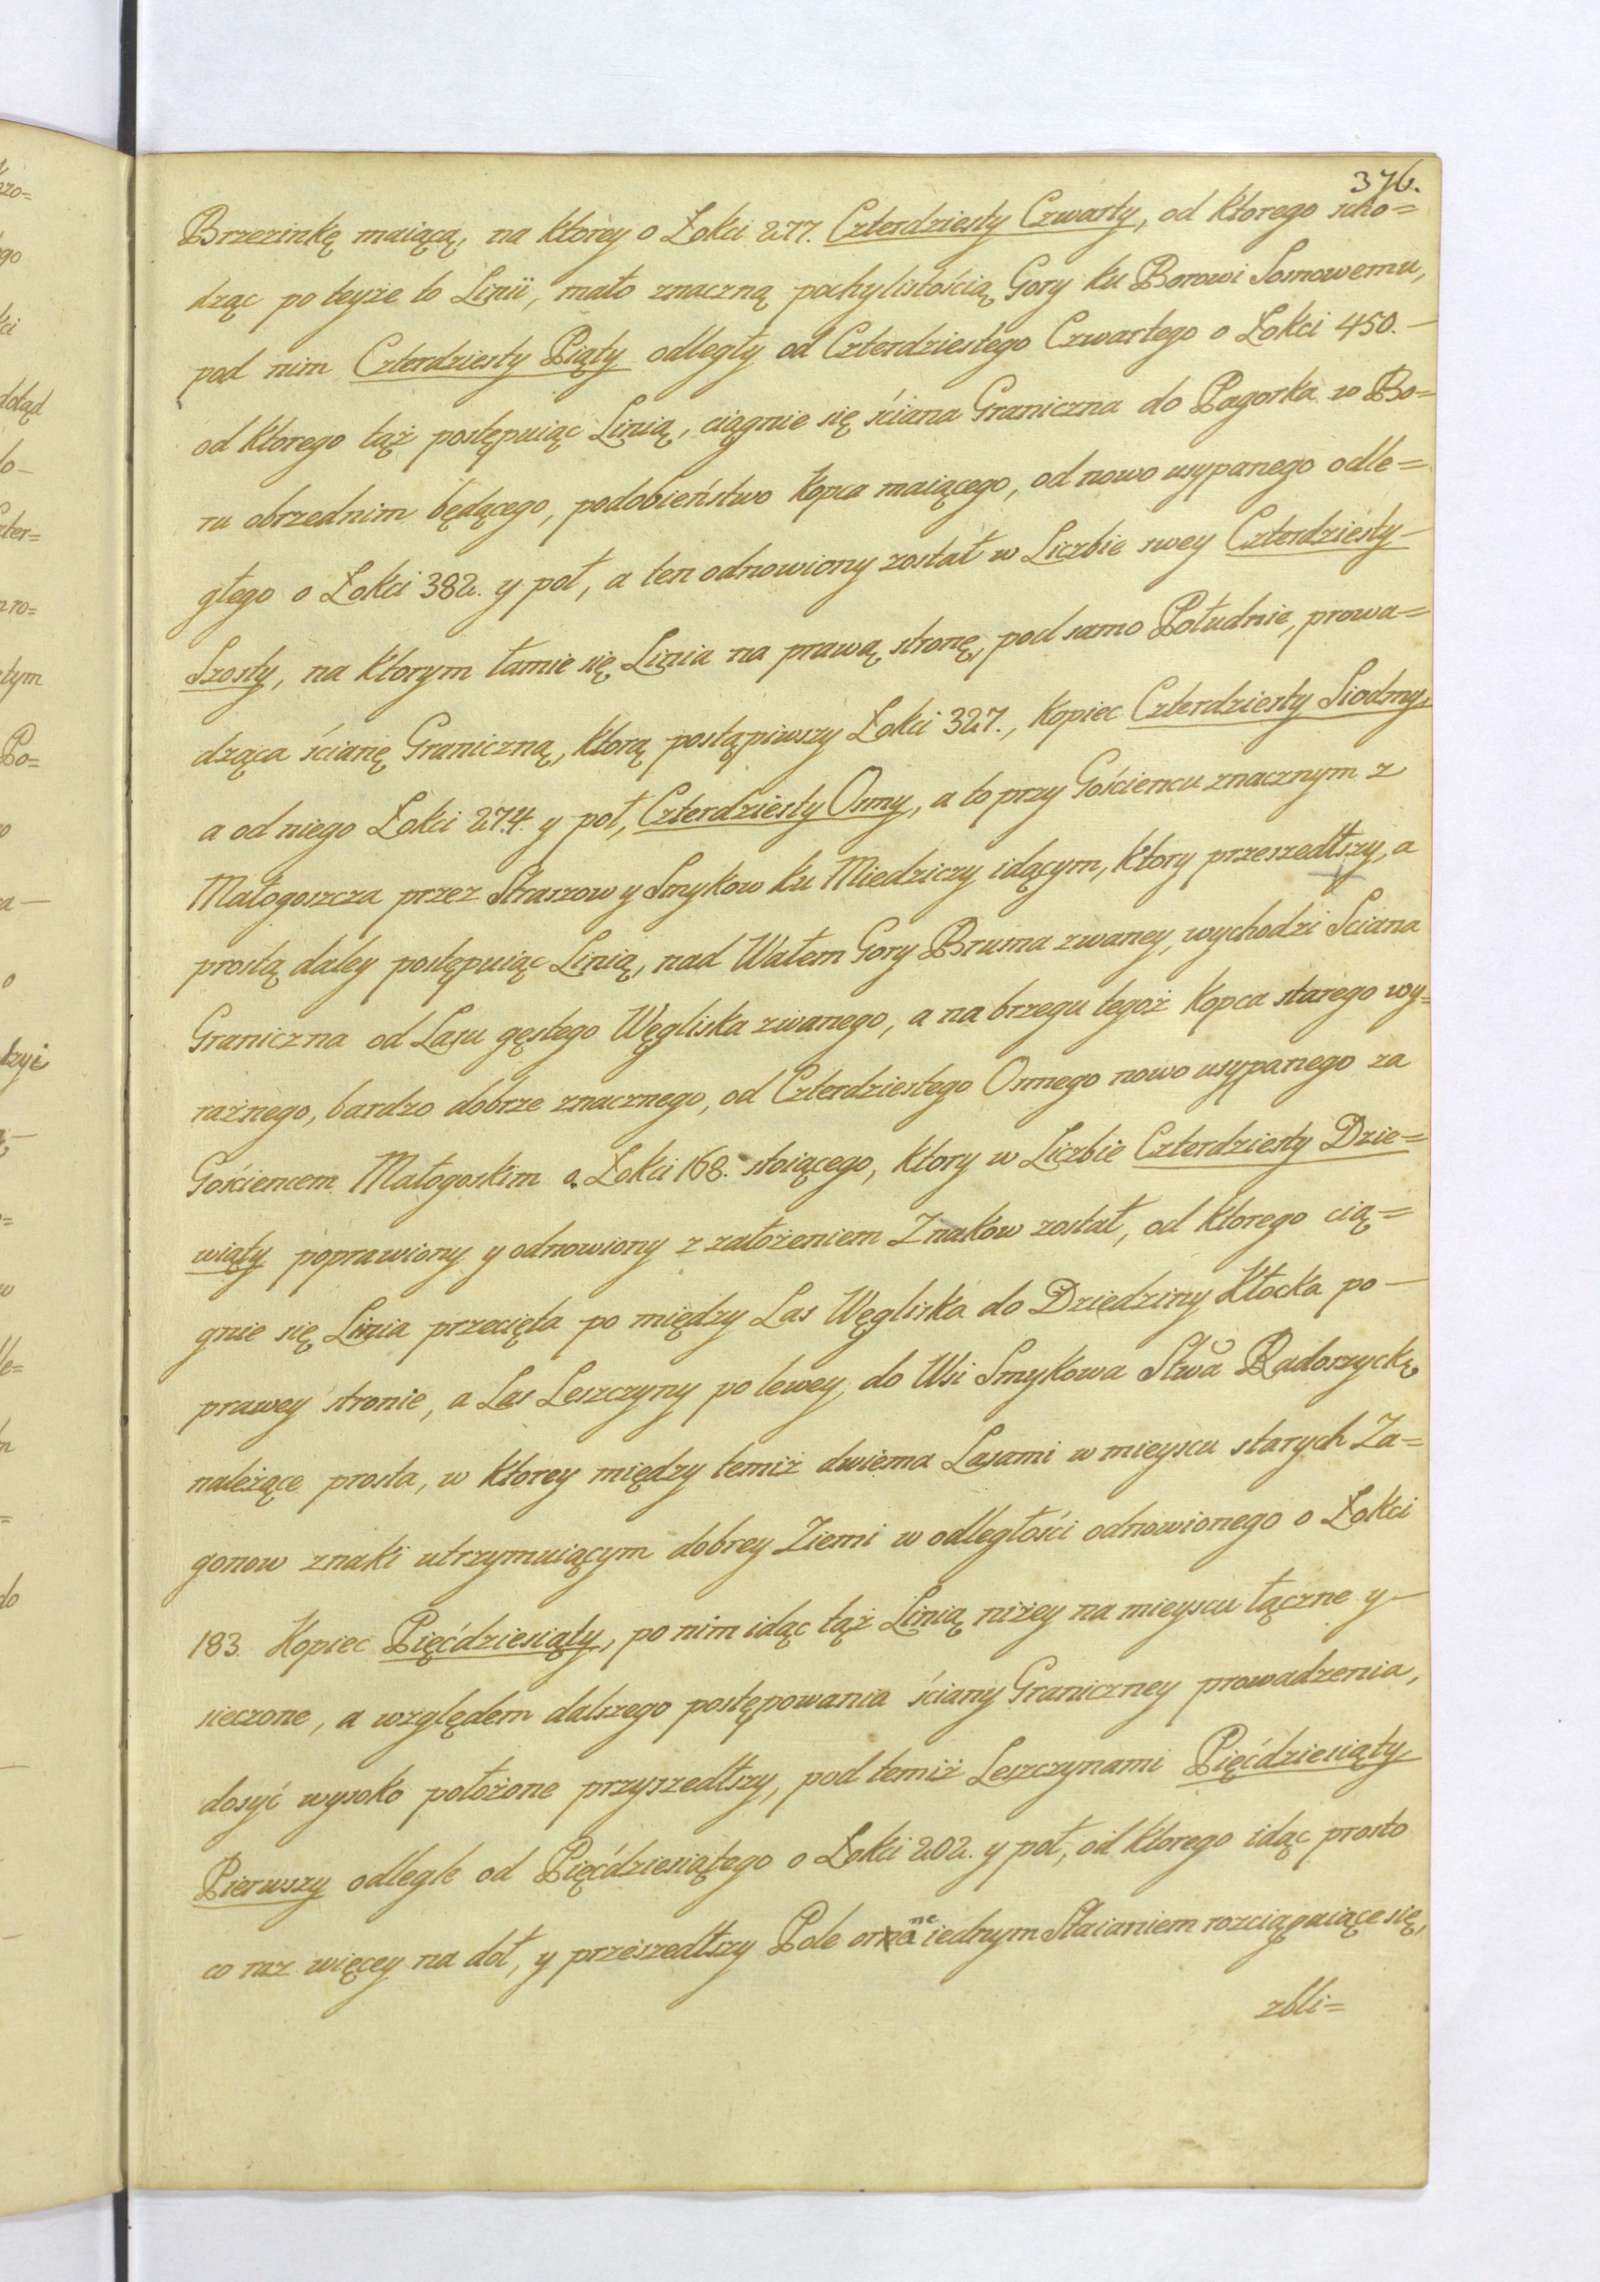 376.
Brzezinkę maiącą, na ktorey o Łokci 277. Czterdziesty Czwarty, od ktorego scho=
dząc po teyże to Linii, mało znaczną pochylistością Gory ku Borowi Sosnowemu,
pod nim Czterdziesty Piąty odległy od Czterdziestego Czwartego o Łokci 450.—
od ktorego tąż postępuiąc Linią, ciągnie się ściana Graniczna do Pagorka w Bo=
ru obrzednim będącego, podobieństwo Kopca maiącego, od nowo usypanego odle=
głego o Łokci 382. y poł, a ten odnowiony został w Liczbie swey Czterdziesty—
Szosty, na ktorym łamie się Linia na prawą stronę, pod samo Południe, prowa=
dząca ścianę Graniczną, ktorą postąpiwszy Łokci 327., Kopiec Czterdziesty Siodmy,
a od niego Łokci 274. y poł, Czterdziesty Osmy, a to przy Gościencu znacznym z
Małogoszcza przez Straszow y Smykow ku Miedziczy idącym, ktory przeszedłszy, a
prostą daley postępuiąc Linią, nad Wałem Gory Bruma zwaney, wychodzi Sciana
Graniczna od Lasu gęstego Węgliska zwanego, a na brzegu tegoż Kopca starego wy=
raźnego, bardzo dobrze znacznego, od Czterdziestego Osmego nowo usypanego za
Gościencem Małogoskim o Łokci 168. stoiącego, ktory w Liczbie Czterdziesty Dzie=
wiąty poprawiony y odnowiony z założeniem Znakow został, od ktorego cią=
gnie się Linia przecięta po między Las Węgliska do Dziedziny Kłocka po—
prawey stronie, a Las Leszczyny po lewey, do Wsi Smykowa Stwa Radoszyckę
należące prosta, w ktorey między temiż dwiema Lasami w mieyscu starych Za=
gonow znaki utrzymuiącym dobrey Ziemi w odległości odnowionego o Łokci
183. Kopiec Pięćdziesiąty, po nim idąc tąż Linią niżey na mieyscu łączne y—
sieczone, a względem dalszego postępowania ściany Graniczney prowadzenia,
dosyć wysoko położone przyszedłszy, pod temiż Leszczynami Pięćdziesiąty
Pierwszy odległe od Pięćdziesiątego o Łokci 202. y poł, od ktorego idąc prosto
co raz więcey na doł, y przeszedłszy Pole orne iednym Staianiem rozciągaiące się,
zbli=